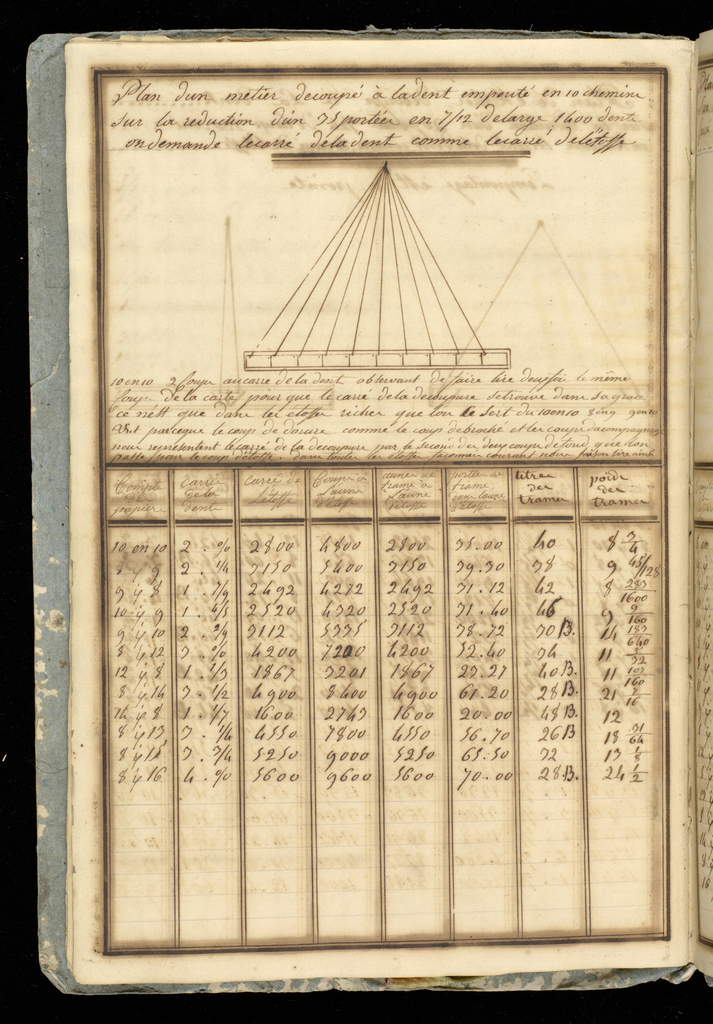 Plan d'un metier decoupé à la dent empouté en 10 chemins
sur la reduction d'un 75 portées en 7/12 de large 1400 dents
on demande le carré de la dent comme le carré de l'étoffe
10 en 10 2 Coups au carré de la dent observant de faire lire deux fois le même
Coup de la carte pour que le carré de la decoupure se trouve dans sa grace
ce n'est que dans les étoffes riches que l'on se sert du 10 en 10 8 en 9 9 en 10
parceque le coup de dorure comme le coup de broché et les coups d'accompagnage
nous representent le carré de la decoupure par le second des deux coups de fond que l'on
passe pour le coup d'étoffe. dans toutes les étoffes façonnés courant nous faisons lire
Compte de papiers | Carré de la dent | Carré de l'étoffe | Coups à l'aune | aunes de trame à l'aune d'étoffe | portées de trame | titres des trames | poids des trames
10 en 10 | 2 . 0/0 | 2800 | 4800 | 2800 | 35.00 | 40 | 8 3/4
8 y 9 | 2 . 1/4 | 3150 | 5400 | 3150 | 39.30 | 38 | 9 45/128
9 y 8 | 1 . 7/9 | 2492 | 4272 | 2492 | 31.12 | 42 | 8 283/1600
10 y 9 | 1 . 4/5 | 2520 | 4320 | 2520 | 31.40 | 46 | 9 9/160
9 y 10 | 2 . 2/9 | 3112 | 5335 | 3112 | 38.72 | 30 B. | 14 187/640
8 y 12 | 3 . 0/0 | 4200 | 7200 | 4200 | 52.40 | 34 | 11 5/32
12 y 8 | 1 . 1/3 | 1867 | 3201 | 1867 | 23.27 | 40 B. | 11 107/160
8 y 14 | 3 . 1/2 | 4900 | 8400 | 4900 | 61.20 | 28 B. | 21 7/16
14 y 8 | 1 . 1/7 | 1600 | 2743 | 1600 | 20.00 | 48 B. | 12
8 y 13 | 3 . 1/4 | 4550 | 7800 | 4550 | 56.70 | 26 B. | 18 31/64
8 y 15 | 3 . 3/4 | 5250 | 9000 | 5250 | 65.50 | 32 | 13 1/8
8 y 16 | 4 . 0/0 | 5600 | 9600 | 5600 | 70.00 | 28 B. | 24 1/2